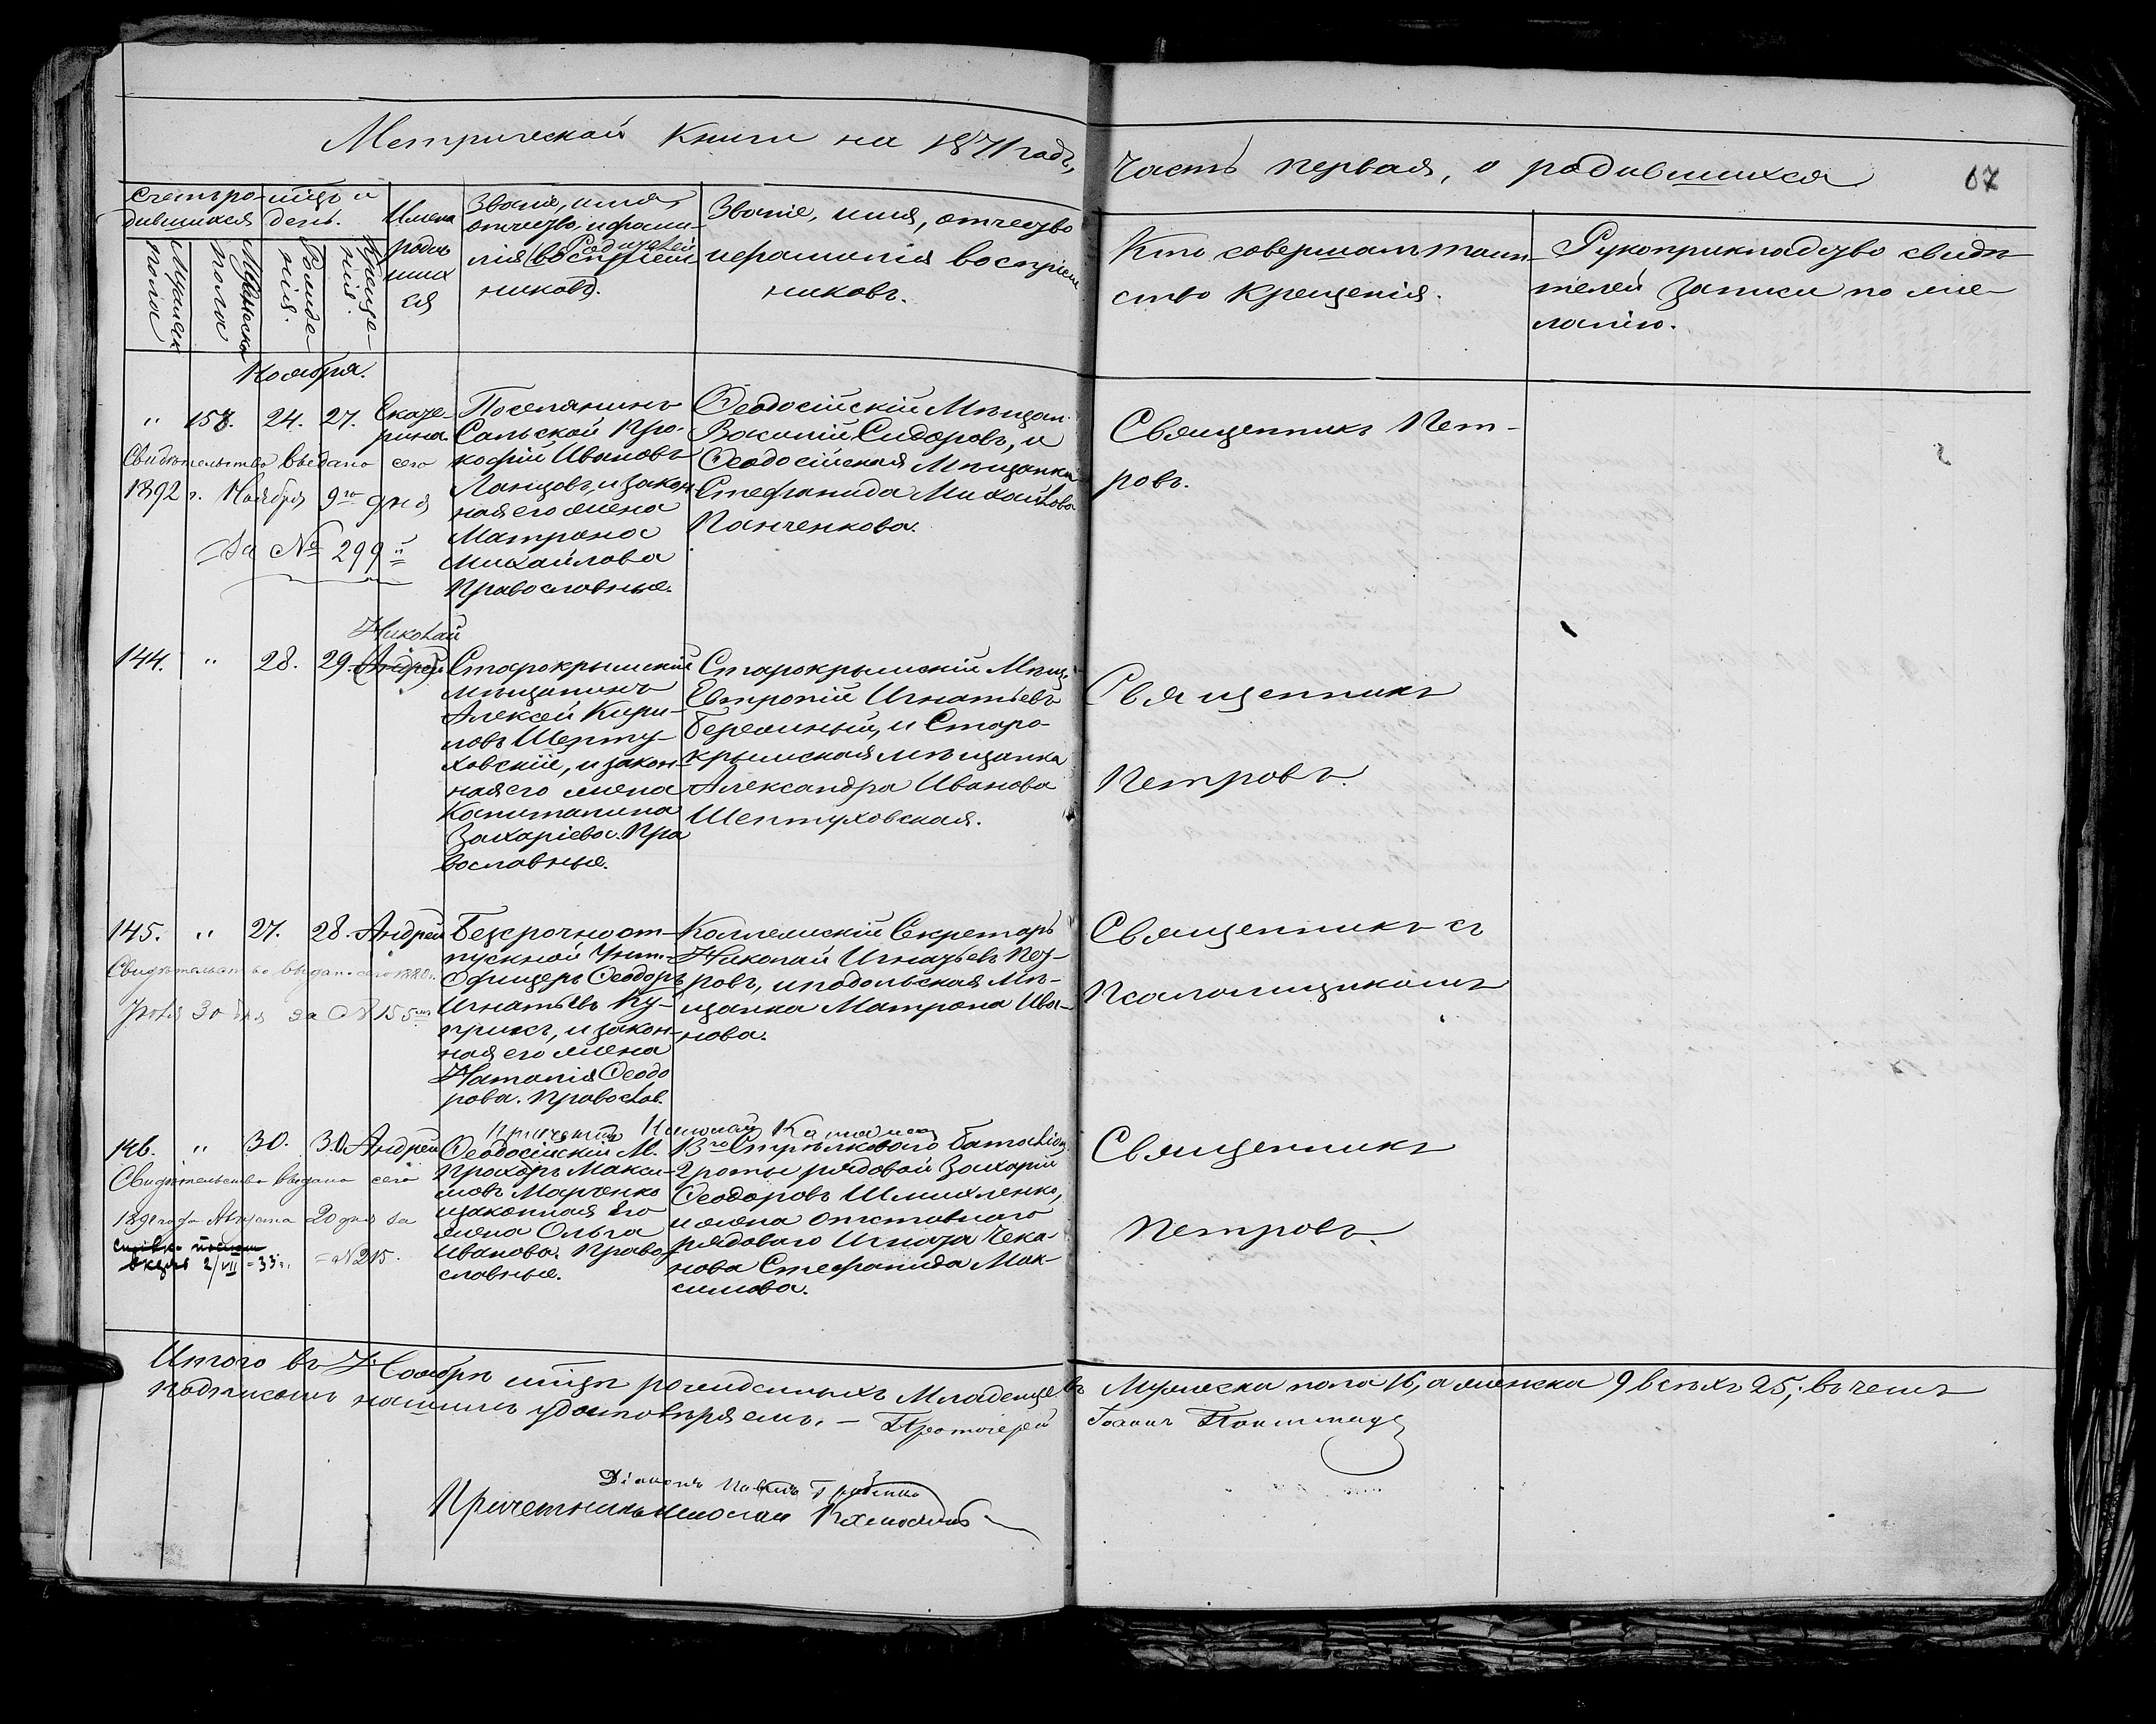 Метрической Книги на 1871 годъ,
Часть первая, о родившихся
67
Счетъ родившихся
Мѣсяцъ и день.
Мужеска пола
Женска пола
Рожденія.
Крещенія.
Имена родившихся
Званіе, имя, отчество, и фамилія Родителей (воспріемниковъ).
Званіе, имя, отчество
и фамилія воспріем
никовъ.
Кто совершалъ таин-
ство крещенія.
Рукоприкладство свидѣ-
телей записи по же-
ланію.
Ноября.
" 158. 24. 27. Екате-
рина.
Поселянинъ
Сальской Про-
кофій Ивановъ
Ланцовъ, и закон
ная его жена
Матрона
Михайлова
Православные.
Ѳеодосійскій Мѣщан.
Василій Сидоровъ, и
Ѳеодосійская Мѣщанка
Стефанида Михайлова
Панченкова.
Священникъ Пет-
ровъ.
Свидѣтельство выдано сего
1892 г. Ноября 9го дня
за № 299
144. " 28. 29. Николай
(Андрей)
Старокрымскій
мѣщанинъ
Алексѣй Кири-
ловъ Шепту-
ховскій, и закон-
ная его жена
Капиталина
Захаріева. Пра
вославные.
Старокрымскій Мѣщ.
Евтропій Игнатьевъ
Бережный, и Старо-
крымская мѣщанка
Александра Иванова
Шептуховская.
Священникъ
Петровъ.
145. " 27. 28. Андрей
Безсрочноот-
пускной Унт.
Офицеръ Ѳеодоръ
Игнатьевъ Ку-
прикъ, и закон-
ная его жена
Наталія Ѳеодо
рова. Православ.
Коллежскій Секретарь
Николай Игнатьевъ Пет-
ровъ, и подольская Мѣ-
щанка Матрона Ива-
нова.
Священникъ съ
Псаломщикомъ
Свидѣтельство выдано сего 1880 г.
Іюля 30 дня за № 155
146. " 30. 30. Андрей
Ѳеодосійскій М.
Прохоръ Макси-
мовъ Марченко
и законная его
жена Ольга
Иванова. Право
славные.
13го Стрѣлковаго баталіона
2 роты рядовой Захарій
Ѳеодоровъ Шмихленко,
и жена отставнаго
рядоваго Игната Чека-
нова Стефанида Мак-
симова.
Священникъ
Петровъ.
Свидѣтельство выдано сего
1891 года Августа 20 дня за
= № 215.
2/VII = 33 г.
Итого въ Ноябрѣ мѣсяцѣ рожденныхъ Младенцевъ Мужеска пола 16, а женска 9 всѣхъ 25; въ чемъ
подписомъ нашимъ удостовѣряемъ. — Протоіерей Іоаннъ
Діаконъ Павелъ
Причетникъ Николай